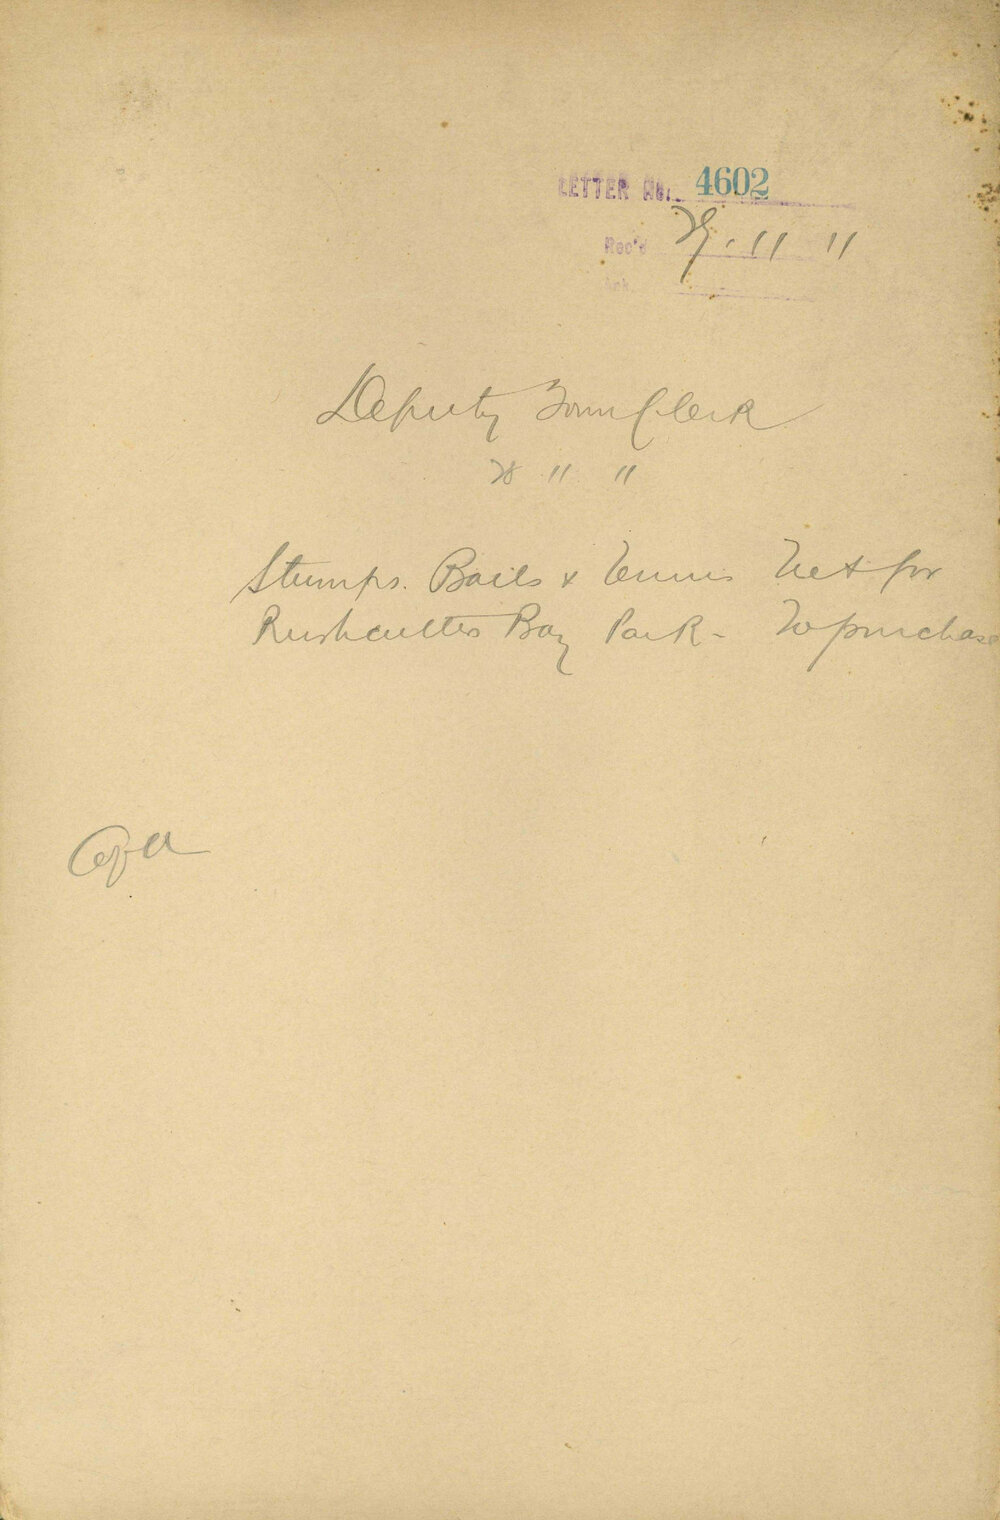 LETTER No. 4602
Rec'd 29.11 11
Ack.
Deputy Town Clerk
28 11 11
Stumps. Bails & Tennis Net for
Rushcutters Bay Park - To purchase